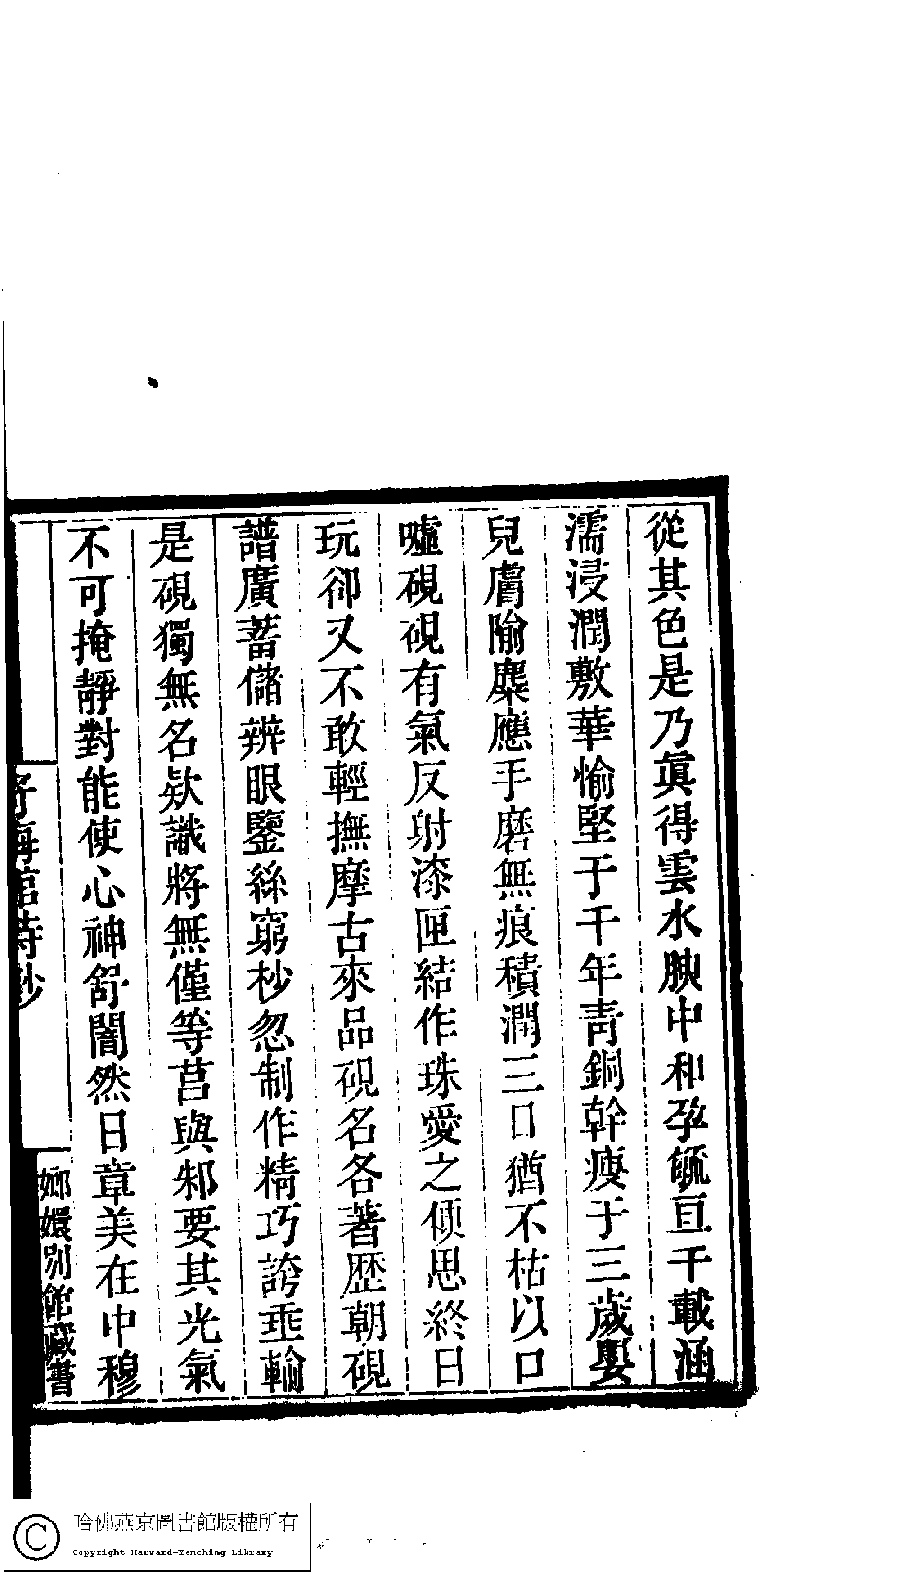 從其色是乃眞得雲水腴中和孕毓亘千載涵
濡浸潤敷華愉堅于千年青銅幹瘦于三歲嬰
兒膚隃麋應手磨無痕積潤三日猶不枯以口
噓硯硯有氣反射漆匣結作珠愛之傾思終日
玩卻又不敢輕撫摩古來品硯名各著歷朝硯
譜廣蓄儲辨眼鑒絲窮杪忽制作精巧誇垂輪
是硯獨無名欵識將無僅等莒與邾要其光氣
不可掩靜對能使心神舒闇然日章美在中穆
海館詩鈔
嫏嬛別館藏書
哈佛燕京圖書館版權所有
Copyright Harvard-Yenching Library